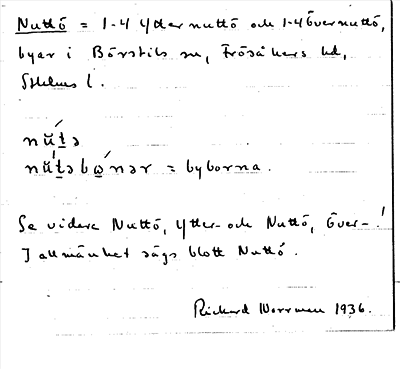 Nuttö = 1-4 Ytternuttö och 1-4 Övernuttö,
byar i Börstils sn, Frösåkers hd,
Sthlms l.
nŭ́t̲ə
nŭ́t̲əbὼ̲nər = byborna.
Se vidare Nuttö, Ytter- och Nuttö, Över-!
I allmänhet sägs blott Nuttö.
Rickard Worrman 1936.